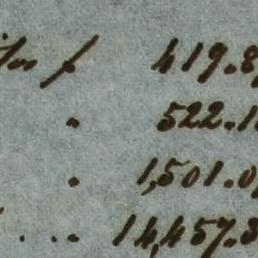 f 419.8
. 522.1
. 1,501.0
. . .. 14,457.8